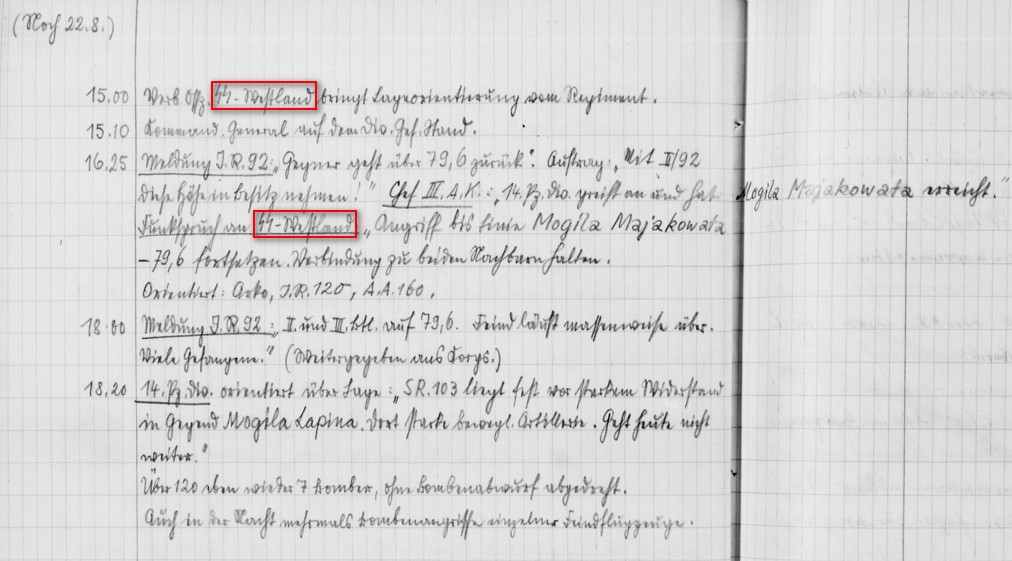 (Noch 22.8.)
15.00 Verb.Offz. SS-Westland bringt Lageorientierung vom Regiment.
15.10 Kommand. General auf dem Div. Gef. Stand.
16,25 Meldung J.R.92: „Gegner geht über 79,6 zurück“. Auftrag: „Mit II/92
diese Höhe in Besitz nehmen!“ Chef III.A.K.: „14.Pz.Div. greift an und hat Mogila Majakowata erreicht.“
Funkspruch an SS-Westland „Angriff bis Linie Mogila Majakowata
– 79,6 fortsetzen. Verbindung zu beiden Nachbarn halten.
Orientiert: Arko, J.R.120, A.A.160.
18.00 Meldung J.R.92: „II. und III. Btl. auf 79,6. Feind läuft massenweise über.
Viele Gefangene.“ (Weitergegeben ans Korps.)
18,20 14.Pz.Div. orientiert über Lage: „S.R.103 liegt fest vor starkem Widerstand
in Gegend Mogila Lapina. Dort starke bewegl. Artillerie. Geht heute nicht
weiter.“
Über 120 eben wieder 7 Bomber, ohne Bombenabwurf abgedreht.
Auch in der Nacht mehrmals Bombenangriffe einzelner Feindflugzeuge.